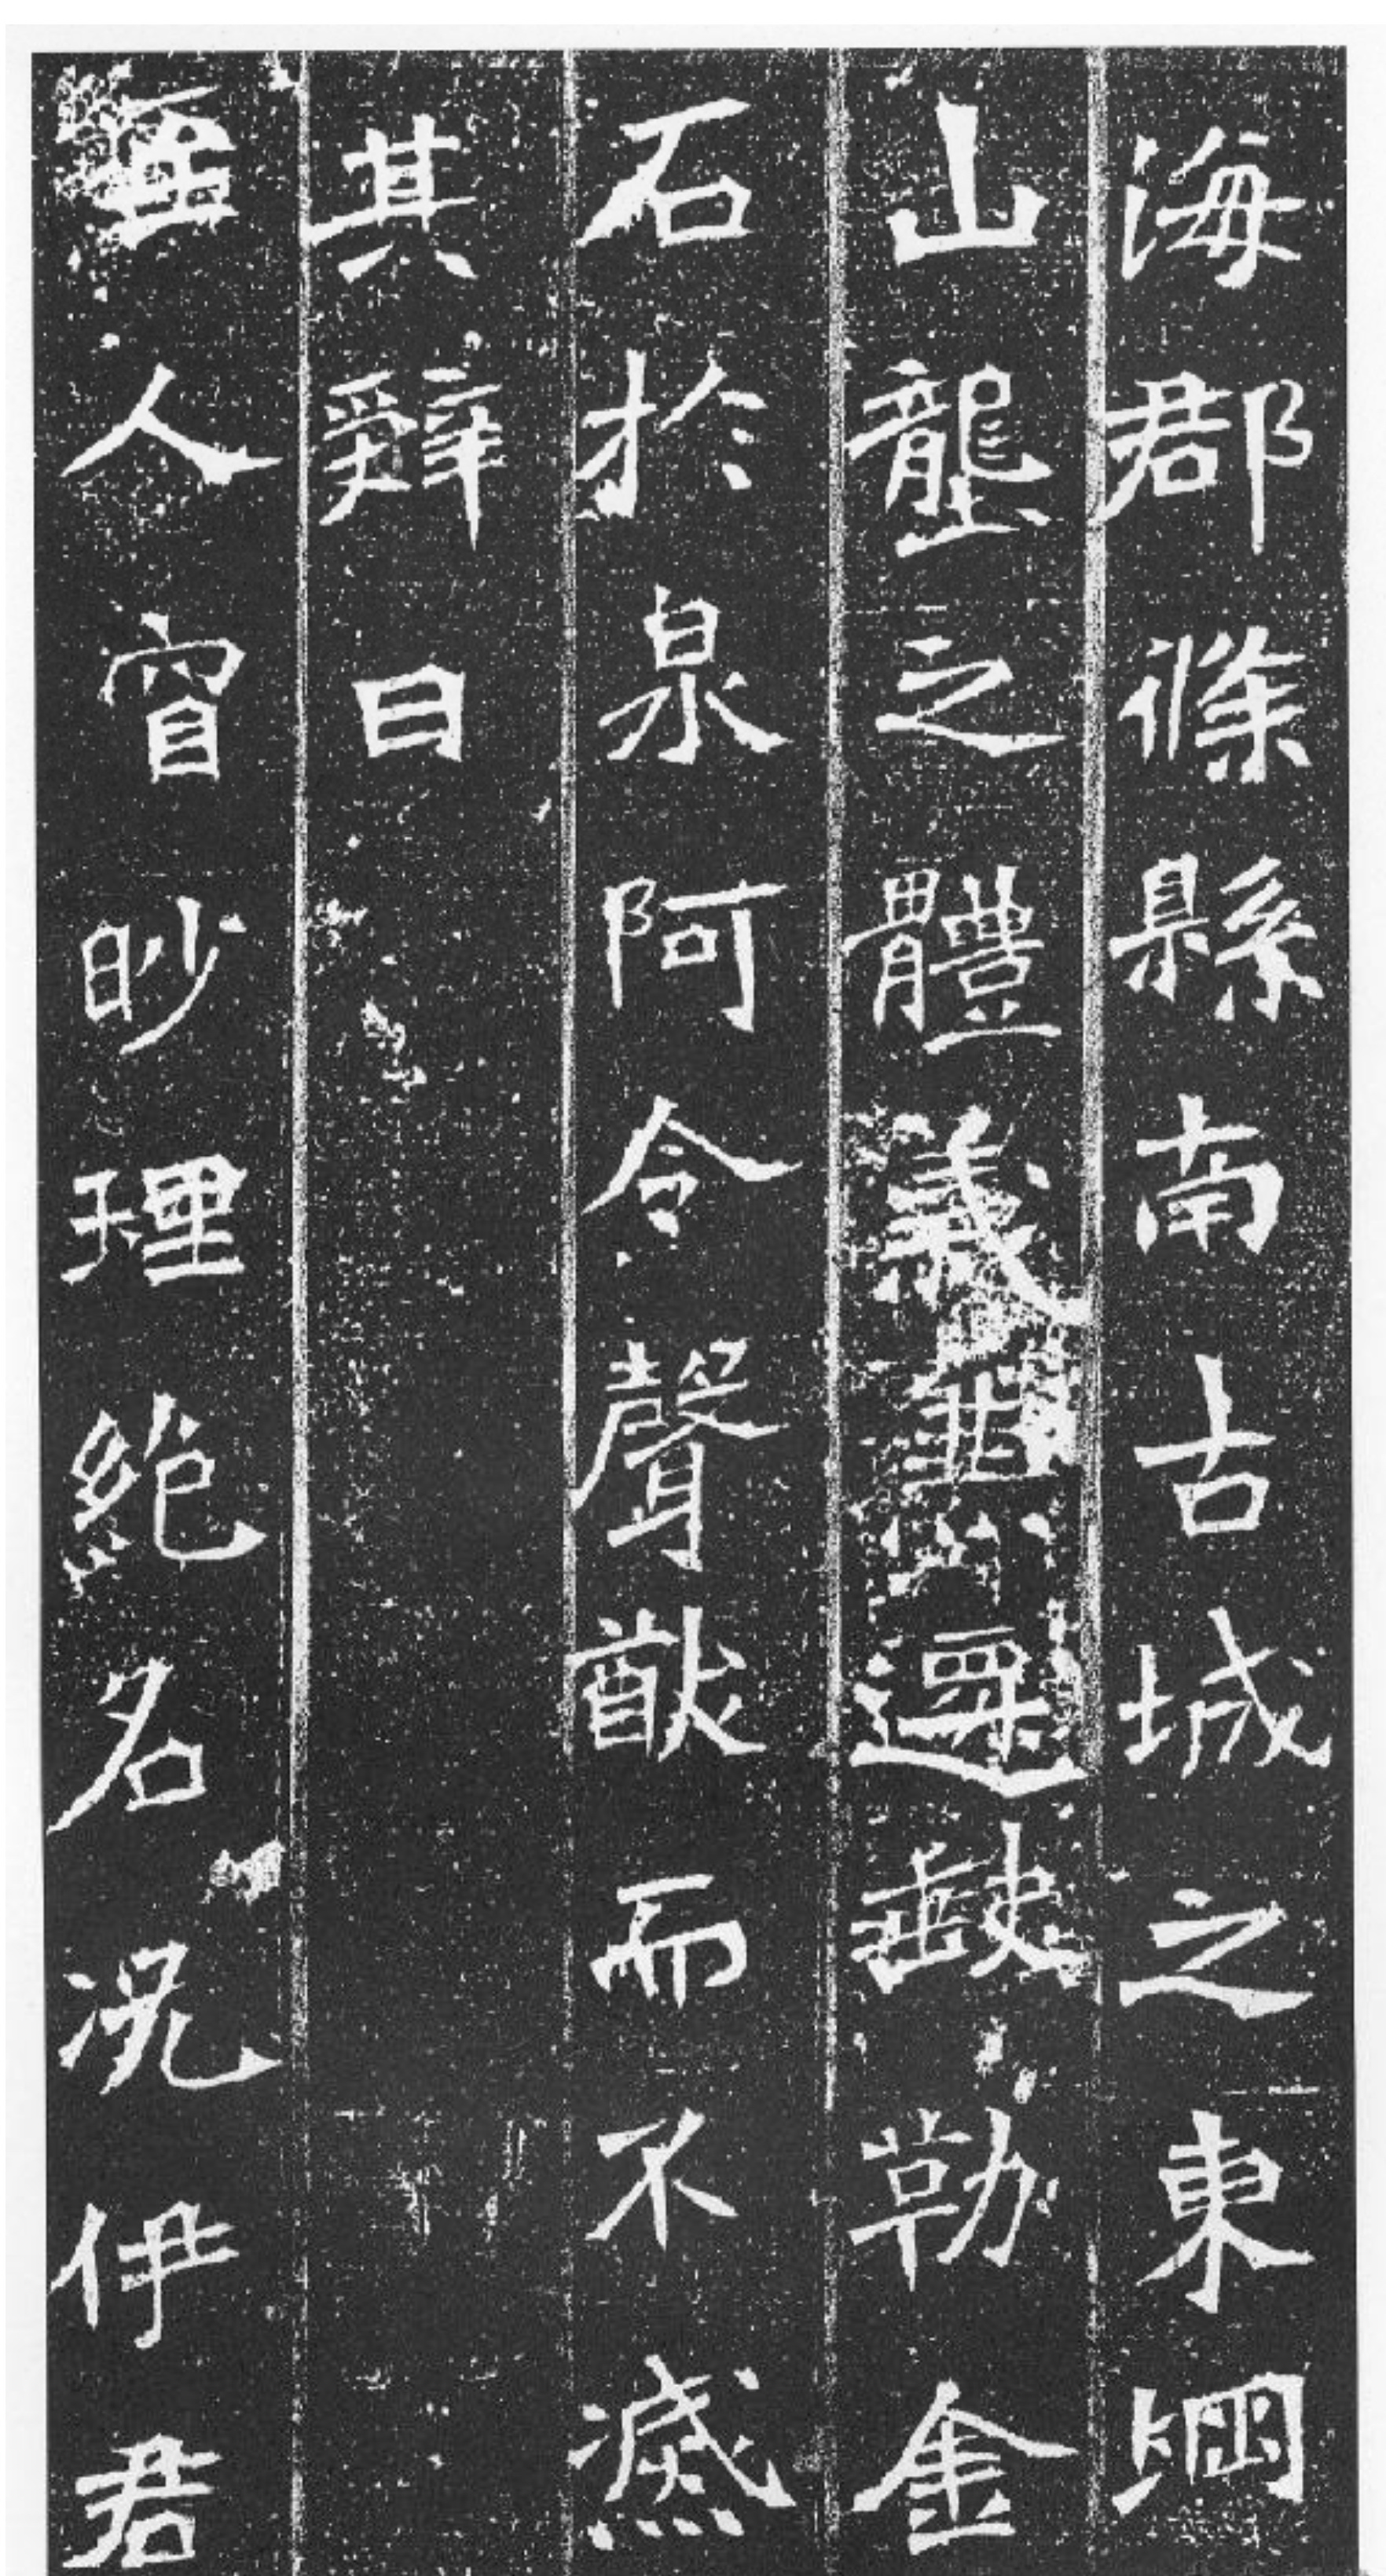 海郡條縣南古城之東堈
山壟之體缺勒金
石於泉阿令聲猷而不滅
其辭曰
人窅眇理絕名况伊君